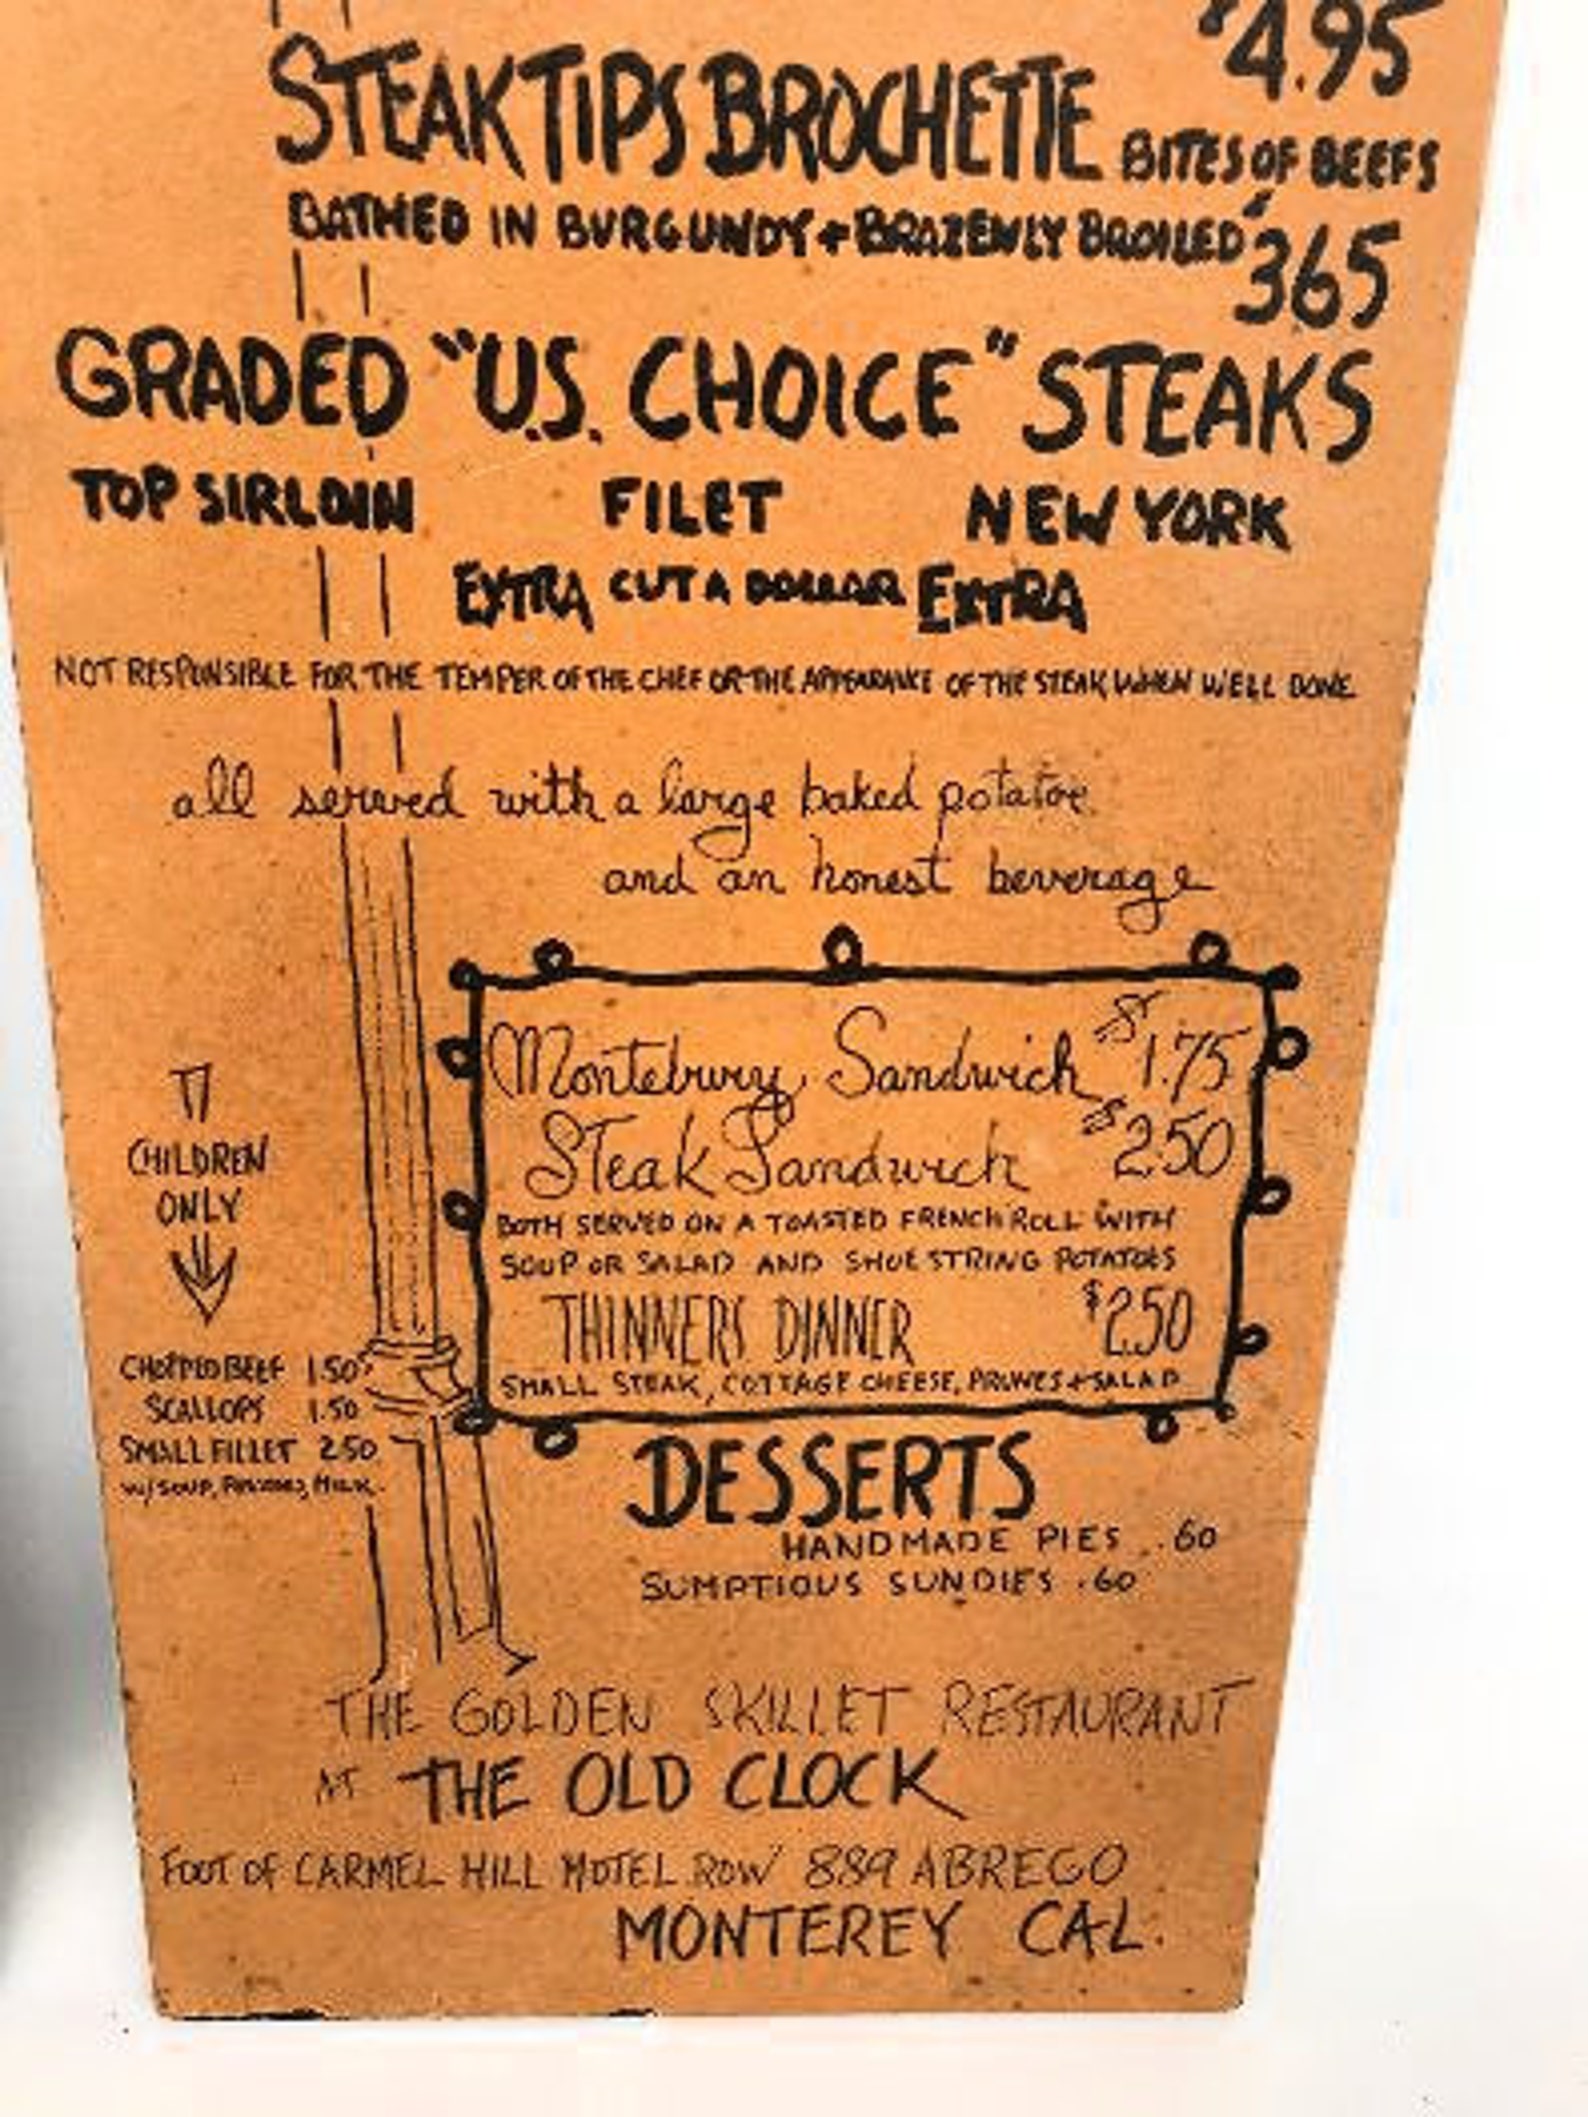 $4.95
STEAK TIPS BROCHETTE BITES OF BEEFS
BATHED IN BURGUNDY + BRAZENLY BROILED 365
GRADED "U.S. CHOICE" STEAKS
TOP SIRLOIN FILET NEW YORK
EXTRA CUT A DOLLAR EXTRA
NOT RESPONSIBLE FOR THE TEMPER OF THE CHEF OR THE APPEARANCE OF THE STEAK WHEN WELL DONE
all served with a large baked potatoe
and an honest beverage
Montebury Sandwich $1.75
Steak Sandwich $2.50
BOTH SERVED ON A TOASTED FRENCH ROLL WITH
SOUP OR SALAD AND SHOE STRING POTATOES
THINNERS DINNER $2.50
SMALL STEAK, COTTAGE CHEESE, PRUNES + SALAD
CHILDREN
ONLY
CHOPPED BEEF 1.50
SCALLOPS 1.50
SMALL FILLET 2.50
W/ SOUP, POTATOES, MILK
DESSERTS
HANDMADE PIES .60
SUMPTIOUS SUNDIES .60
THE GOLDEN SKILLET RESTAURANT
AT THE OLD CLOCK
FOOT OF CARMEL HILL MOTEL ROW 889 ABREGO
MONTEREY CAL.